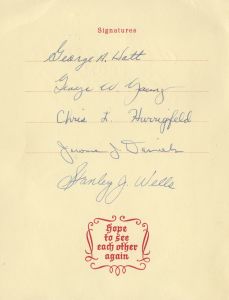 Signatures
George A. Watt
George W. Young
Chris L.
Jerome J. Daniels
Stanley J. Wells
Hope
to see
each other
again